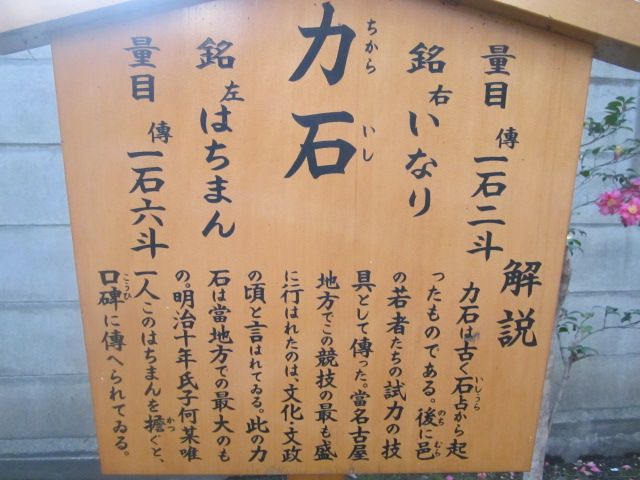 力石
ちから いし
銘 右 いなり
量目 傳 一石二斗
銘 左 はちまん
量目 傳 一石六斗
解説
力石は古く石占から起
いしうら
ったものである。後に邑
のち むら
の若者たちの試力の技
具として傳った。當名古屋
地方でこの競技の最も盛
に行はれたのは、文化・文政
の頃と言はれてゐる。此の力
石は當地方での最大のも
の。明治十年氏子何某唯
一人このはちまんを擔ぐと、
かつ
口碑に傳へられてゐる。
こうひ